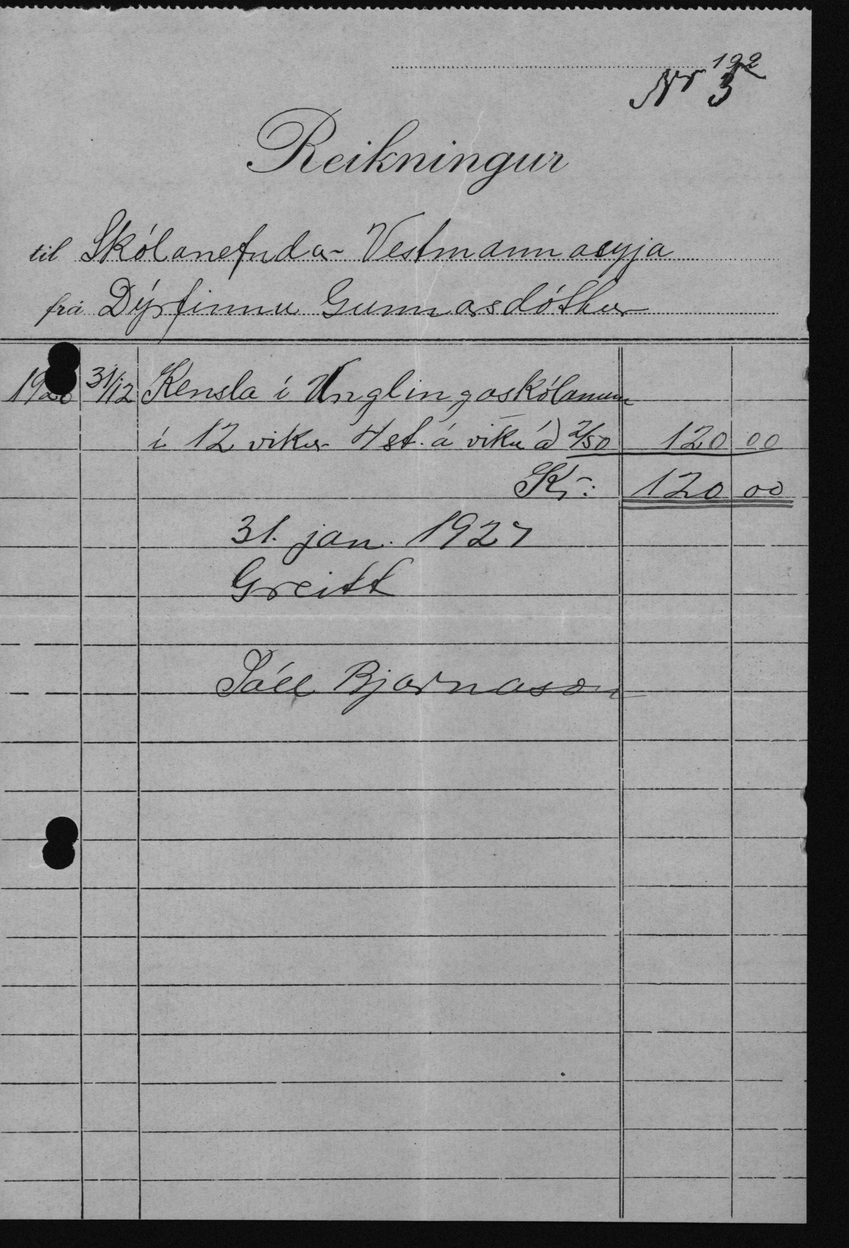 192
Nr 3
Reikningur
til Skólanefnda- Vestmannaeyja
frá Dýrfinnu Gunnarsdóttur
1926 31/12 Kensla í Unglingaskólanum
í 12 vikur 4 st. á viku á 2/50 120 00
Kr: 120 00
31. jan. 1927
Greitt
Páll Bjarnason